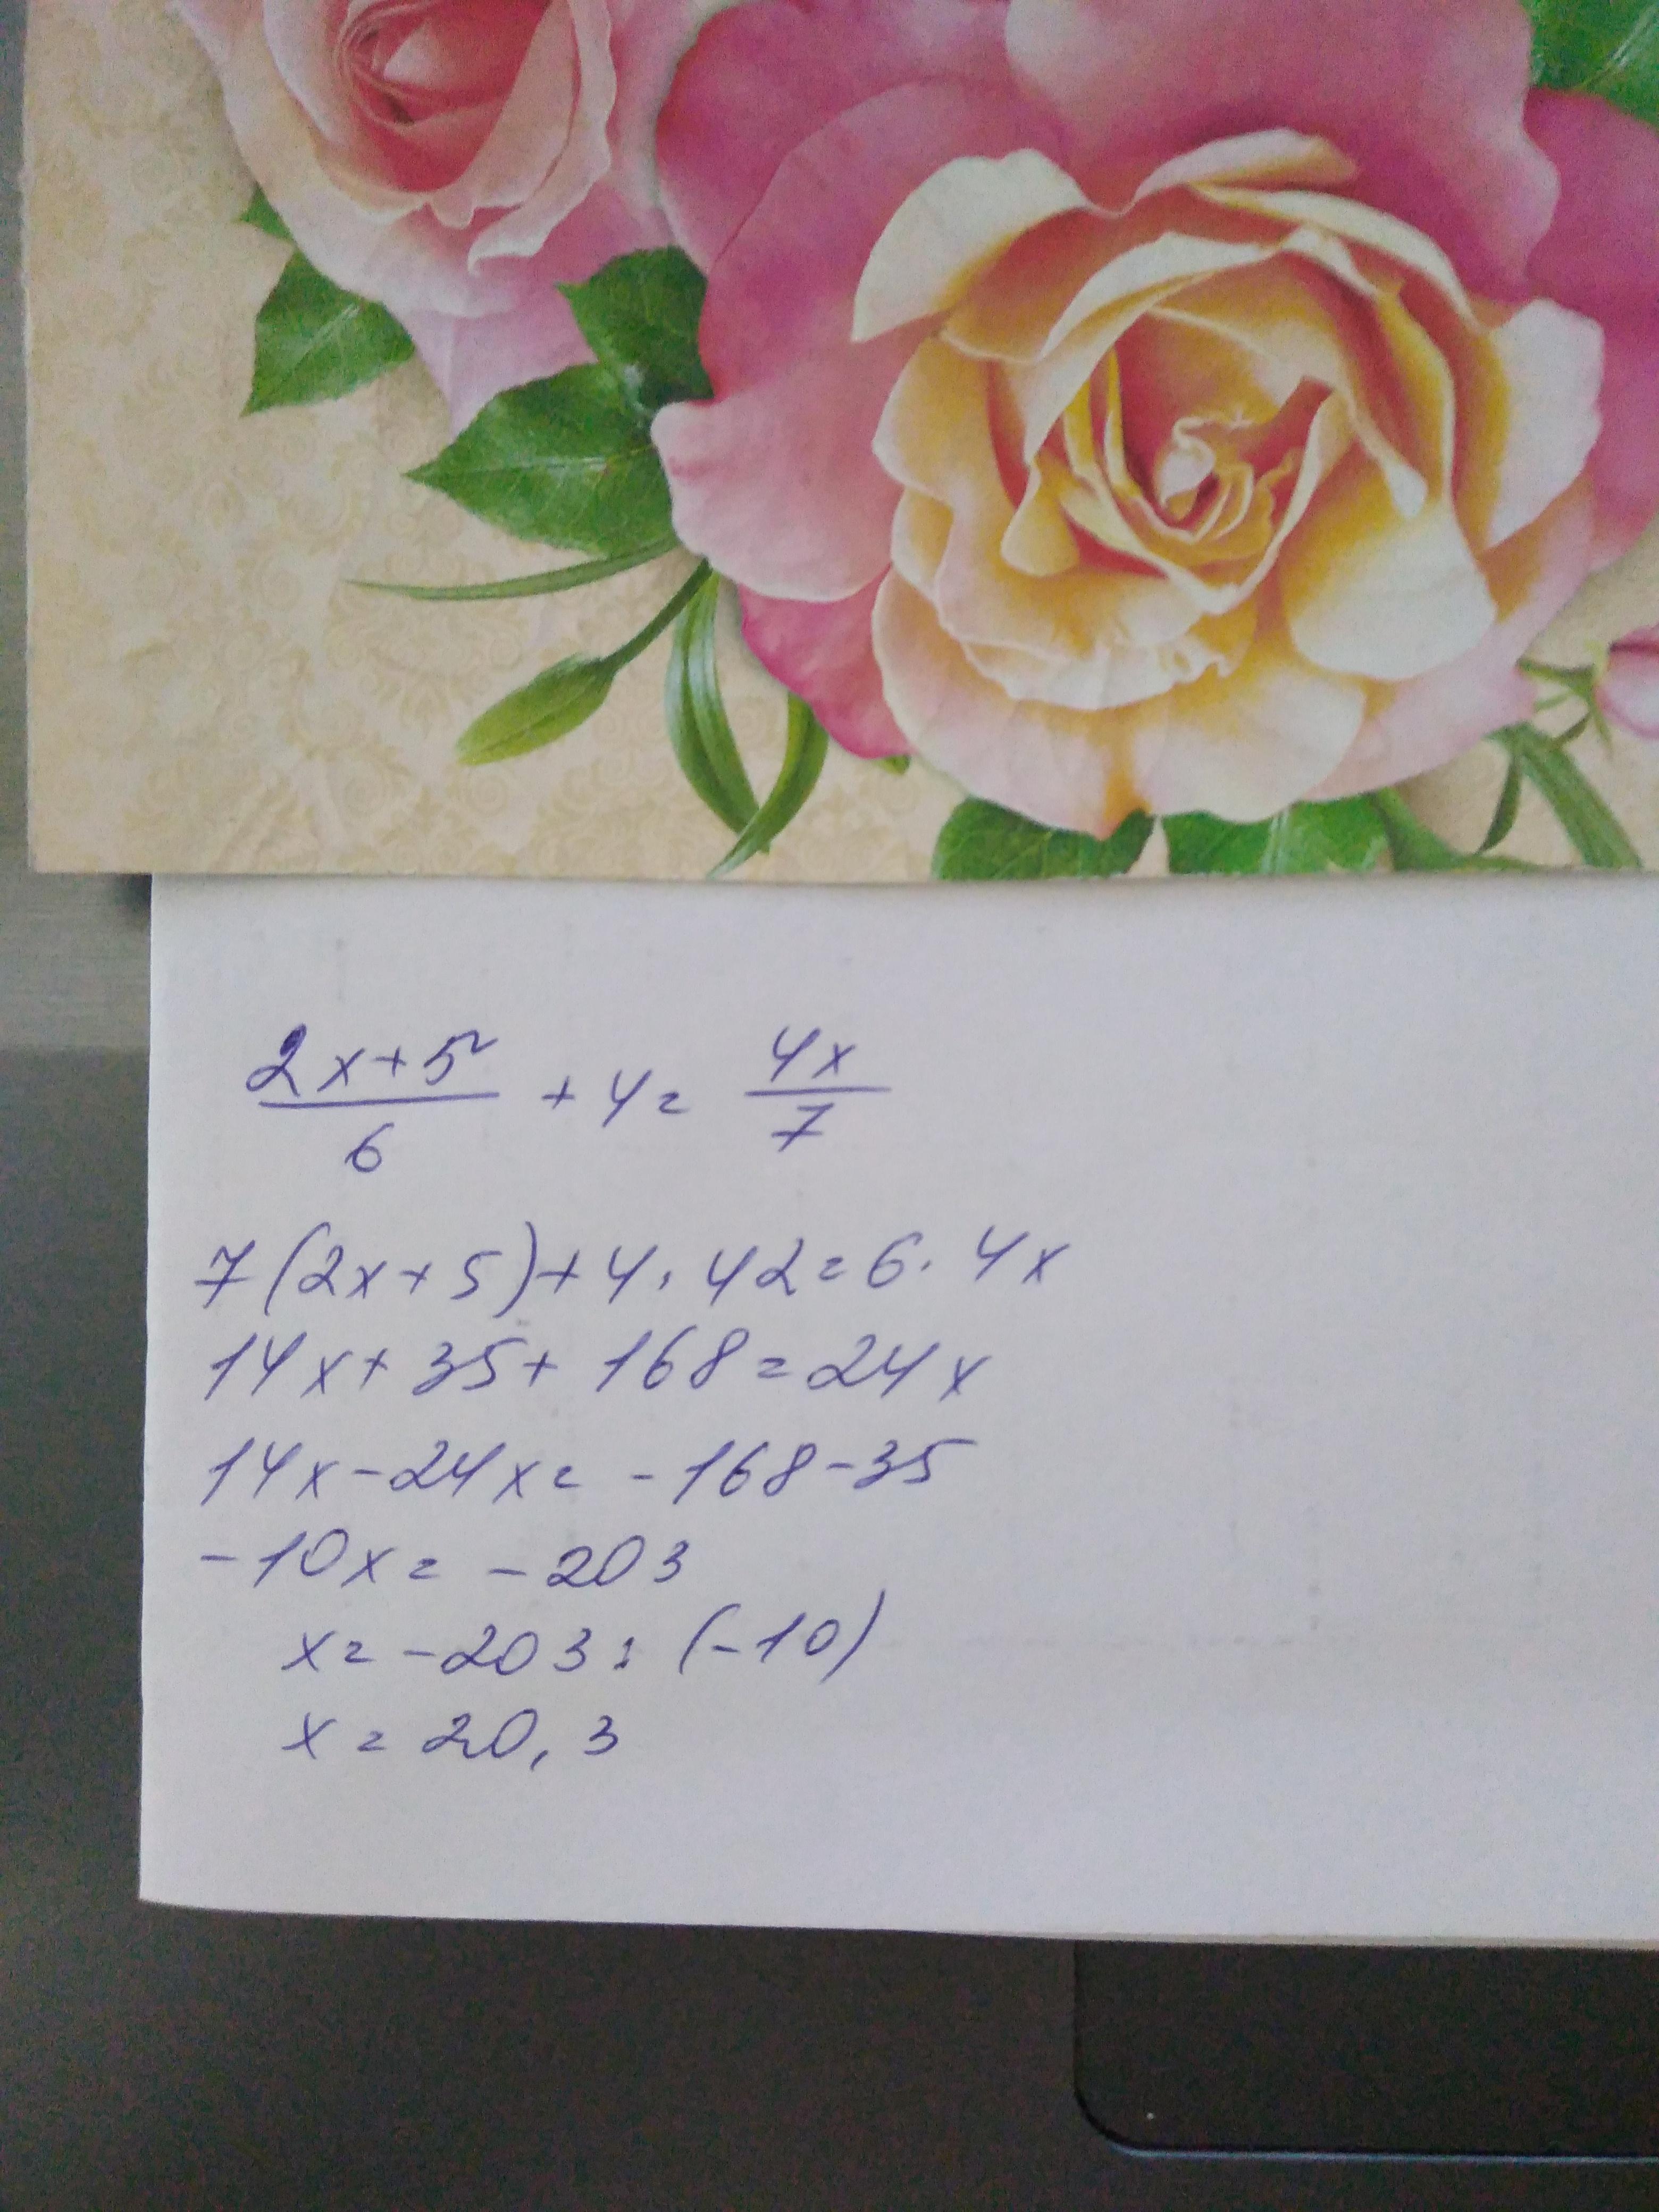 (2x+5)/6 + 4 = 4x/7
7(2x+5)+4·42=6·4x
14x+35+168=24x
14x-24x=-168-35
-10x=-203
x=-203:(-10)
x=20,3